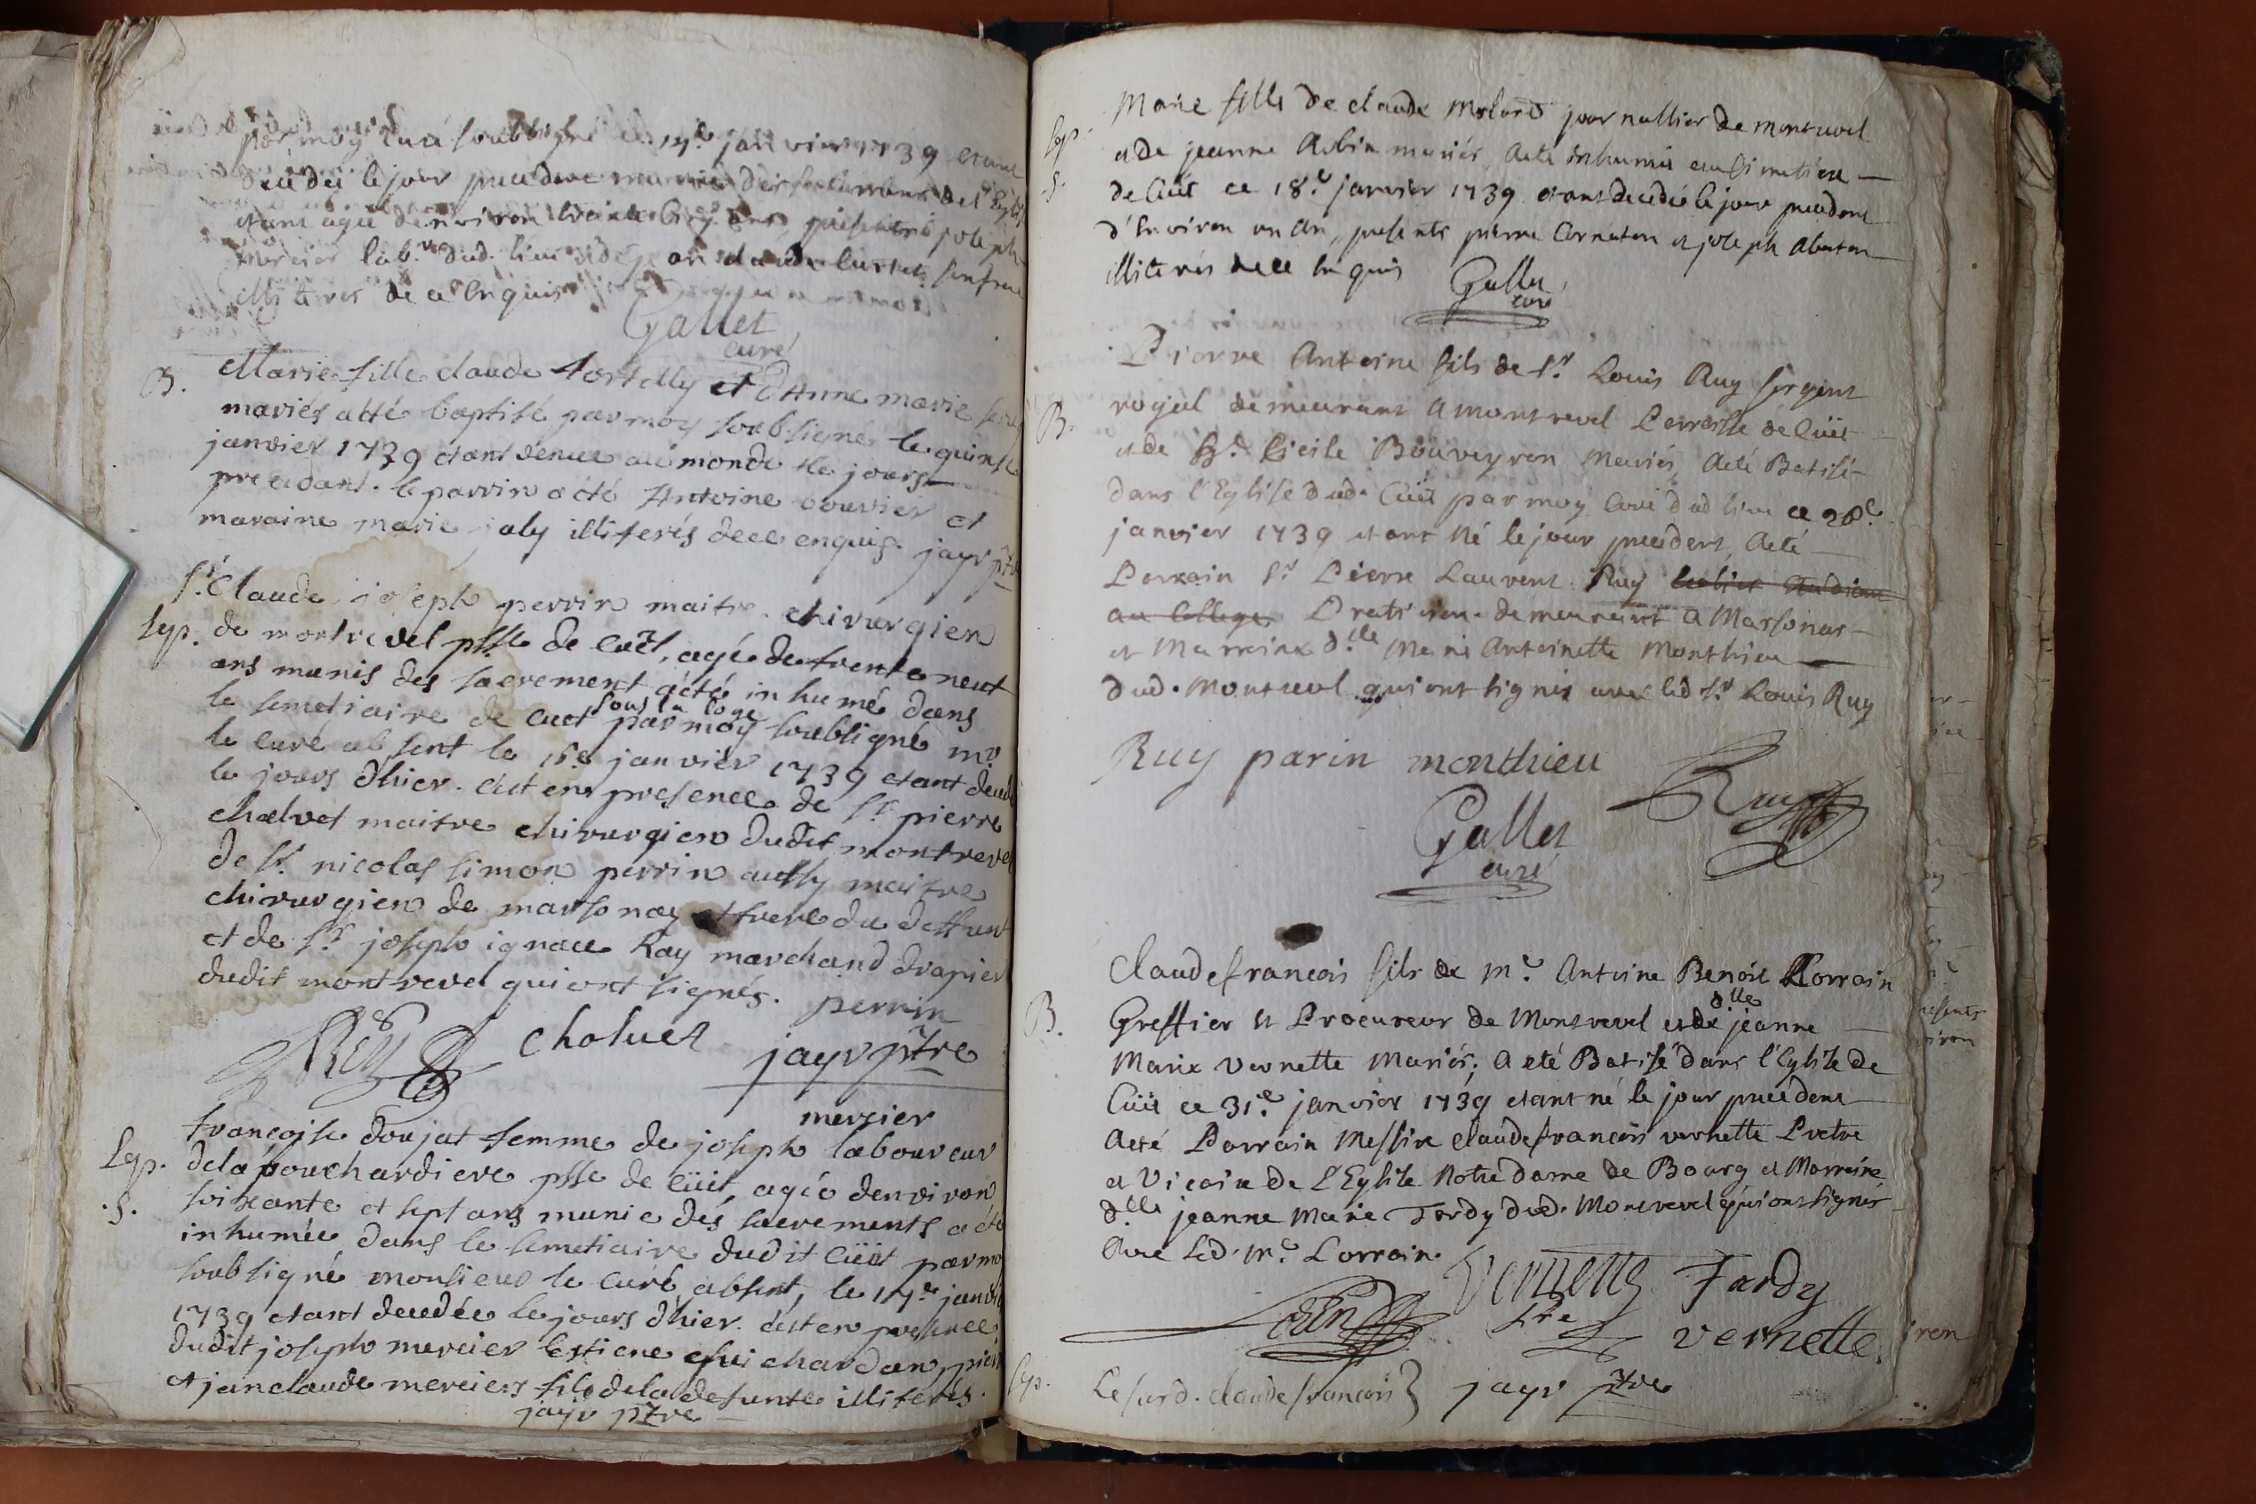 par moy curé soubsigné le 14e janvier 1739 etant
decedé le jour precedent munie des sacrements de l'Eglise
etant agée denviron trente cinq ans, presents joseph
mercier lab.r dud. lieu
illiterés de ce Enquis
Gallet
curé
B.
Marie fille claude fortelly et d'Anne marie
mariés a eté baptisé par moy soubsigné le quinse
janvier 1739 etant venue au monde le jours
precedant. le parrin a été Antoine bouvier et
maraine marie joly illiterés de ce enquis. jayr ptre
Sr. Claude joseph perrin maitre chirurgien
Sep. de montrevel psse de Cuët, agé de trente neuf
ans munis des sacrement a été in humé dans
sous la loge
le semetiaire de cuet par moy soubsigné mr
le curé absent le 16e janvier 1739 etant decedé
le jours d'hier. c'est en presence de Sr. pierre
chalvet maitre chirurgien dudit montrevel
de Sr. nicolas simon perrin aussy maitre
chirurgien de marsonay et frere du deffunt
et de Sr. joseph ignace Ray marchand drapier
dudit montrevel qui ont signés. perrin
Rey chaluet jayr ptre
mercier
françoise doujat femme de joseph laboureur
Sep. de la bouchardiere psse de cüet, agée denviron
.S. soixante et sept ans munie des sacrements a été
inhumée dans le semetiaire dudit cüet par moy
soubsigné monsieur le curé absent, le 17e janvier
1739 etant decedée le jours d'hier. c'est en presence
dudit joseph mercier
et jan claude merciers fils de la defunte illiterés.
jayr ptre
Sep.
S.
Marie fille de claude Molard journallier de montrevel
et de jeanne Aubin mariés, a eté inhumée au Simetiere
de Cüet ce 18e janvier 1739 etant decedée le jour precedent
d'Environ un An, presents pierre Cornaton et joseph Abaton
illiterés de ce Enquis Gallet
curé
Pierre Antoine fils de Sr. Louis Ruy sergent
B. royal demeurant a montrevel Parroisse de Cüet
et de De. Cicile Böuveyron Mariés, a eté Batisé
dans l'Eglise dud. Cüet par moy Curé dud lieu ce 28e
janvier 1739 etant Né le jour precedent, a eté
Parrain Sr. Pierre Laurent Ruy
au College Praticien demeurant a Marsonas
et Marraine d.lle Marie Antoinette Monthieu
dud. Montrevel qui ont signés avec led Sr. Louis Ruy
Ruy parin monthieu
Ruy
Gallet
curé
Claude francois fils de Me Antoine Benoit Lorrain
d.lle
B. Greffier et Procureur de Montrevel et de jeanne
Marie Vernette Mariés; a eté Batisé dans l'Eglise de
Cüet ce 31e janvier 1739 etant né le jour precedent
a eté Parrain Messire Claude francois vernette Pretre
et Vicaire de l'Eglise Notre Dame de Bourg et Marraine
d.lle jeanne Marie Tardy dud. Montrevel qui ont signés
Avec led. Me Lorrain.
Vernette Tardy
Pre
vernette.
Sep. Le susd. claude francois} jayr ptre